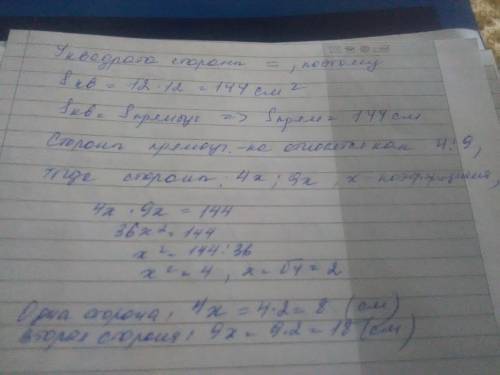 У квадрата стороны =, поэтому
Sкв = 12 · 12 = 144 см²
Sкв = Sпрямоуг => Sпрям = 144 см
Стороны прямоуг-ка относятся как 4:9,
тогда стороны: 4x; 9x, x - коэффициент,
4x · 9x = 144
36x² = 144
x² = 144 : 36
x² = 4, x = √4 = 2
Одна сторона: 4x = 4·2 = 8 (см)
Вторая сторона: 9x = 9·2 = 18 (см)